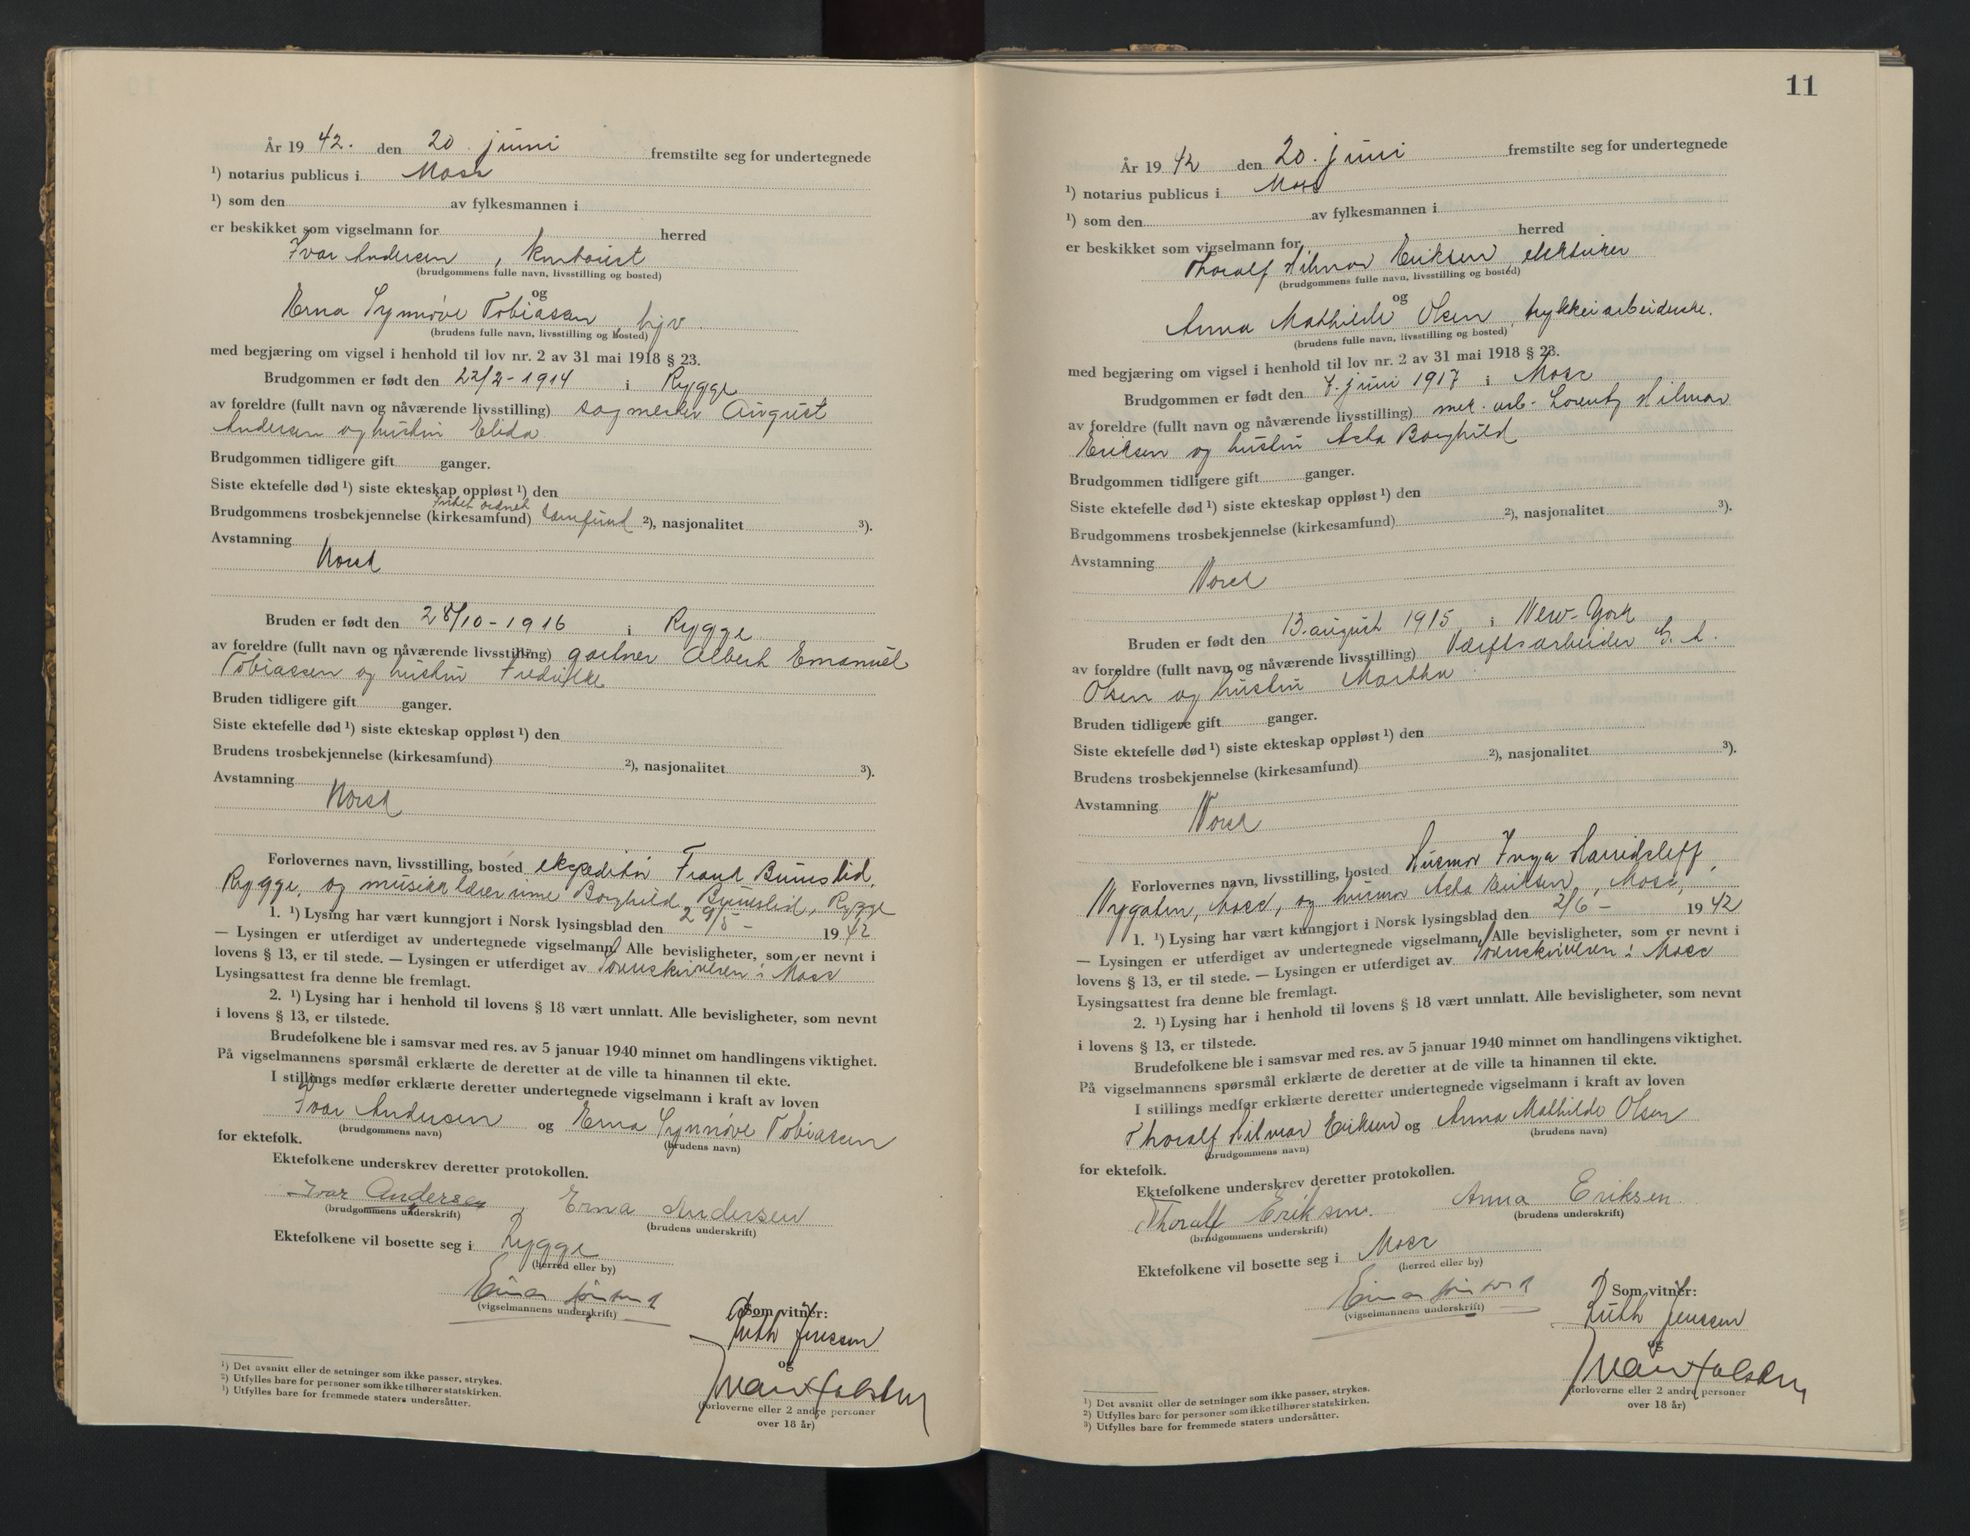 År 19 42. den 20. juni fremstilte seg for undertegnede
¹) notarius publicus i Moss
¹) som den av fylkesmannen i
er beskikket som vigselmann for herred
Ivar Andersen,
(brudgommens fulle navn, livsstilling og bosted)
og
Erna Synnøve Tobiassen, hjv.
(brudens fulle navn, livsstilling og bosted)
med begjæring om vigsel i henhold til lov nr. 2 av 31 mai 1918 § 23.
Brudgommen er født den 22/2-1914 i Rygge
av foreldre (fullt navn og nåværende livsstilling) sagmester August
Andersen og hustru Elida
Brudgommen tidligere gift ganger.
Siste ektefelle død ¹) siste ekteskap oppløst ¹) den
Intet ordnet
Brudgommens trosbekjennelse (kirkesamfund) samfund ²), nasjonalitet ³).
Avstamning
Norsk
Bruden er født den 28/10-1916 i Rygge
av foreldre (fullt navn og nåværende livsstilling) gartner Albert Emanuel
Tobiassen og hustru Fredrikke
Bruden tidligere gift ganger.
Siste ektefelle død ¹) siste ekteskap oppløst ¹) den
Brudens trosbekjennelse (kirkesamfund) ²), nasjonalitet ³).
Avstamning
Norsk
Forlovernes navn, livsstilling, bosted ekspeditør Frank Bumslid,
Rygge, og musikklærerinne Borghild Bumslid, Rygge
1. ¹) Lysing har vært kunngjort i Norsk lysingsblad den 29/5- 19 42
— Lysingen er utferdiget av undertegnede vigselmann. Alle bevisligheter, som er nevnt i
lovens § 13, er til stede. — Lysingen er utferdiget av Sorenskriveren i Moss
Lysingsattest fra denne ble fremlagt.
2. ¹) Lysing har i henhold til lovens § 18 vært unnlatt. Alle bevisligheter, som nevnt
i lovens § 13, er tilstede.
Brudefolkene ble i samsvar med res. av 5 januar 1940 minnet om handlingens viktighet.
På vigselmannens spørsmål erklærte de deretter at de ville ta hinannen til ekte.
I stillings medfør erklærte deretter undertegnede vigselmann i kraft av loven
Ivar Andersen og Erna Synnøve Tobiassen
(brudgommens navn) (brudens navn)
for ektefolk.
Ektefolkene underskrev deretter protokollen.
Ivar Andersen, Erna Andersen
(brudgommens underskrift) (brudens underskrift)
Ektefolkene vil bosette seg i Rygge
(herred eller by)
(vigselmannens underskrift)
Som vitner:
Ruth Jenssen
og
(forloverne eller 2 andre personer
over 18 år)
¹) Det avsnitt eller de setninger som ikke passer, strykes.
²) Utfylles bare for personer som ikke tilhører statskirken.
³) Utfylles bare for fremmede staters undersåtter.
11
År 19 42 den 20. juni fremstilte seg for undertegnede
¹) notarius publicus i Moss
¹) som den av fylkesmannen i
er beskikket som vigselmann for herred
Thoralf Hilmar Eriksen, elektriker
(brudgommens fulle navn, livsstilling og bosted)
og
Anna Mathilde Olsen, trykkeriarbeiderske.
(brudens fulle navn, livsstilling og bosted)
med begjæring om vigsel i henhold til lov nr. 2 av 31 mai 1918 § 23.
Brudgommen er født den 7. juni 1917 i Moss
av foreldre (fullt navn og nåværende livsstilling) mek. arb. Lorentz Hilmar
Eriksen og hustru Asta Borghild
Brudgommen tidligere gift ganger.
Siste ektefelle død ¹) siste ekteskap oppløst ¹) den
Brudgommens trosbekjennelse (kirkesamfund) ²), nasjonalitet ³).
Avstamning
Norsk
Bruden er født den 13. august 1915 i New-York
av foreldre (fullt navn og nåværende livsstilling) Værftsarbeider
Olsen og hustru Martha
Bruden tidligere gift ganger.
Siste ektefelle død ¹) siste ekteskap oppløst ¹) den
Brudens trosbekjennelse (kirkesamfund) ²), nasjonalitet ³).
Avstamning
Norsk
Forlovernes navn, livsstilling, bosted Husmor Inga Harridsleff,
Nygaten, Moss, og husmor Asta Eriksen, Moss,
1. ¹) Lysing har vært kunngjort i Norsk lysingsblad den 2/6- 19 42
— Lysingen er utferdiget av undertegnede vigselmann. Alle bevisligheter, som er nevnt i
lovens § 13, er til stede. — Lysingen er utferdiget av Sorenskriveren i Moss
Lysingsattest fra denne ble fremlagt.
2. ¹) Lysing har i henhold til lovens § 18 vært unnlatt. Alle bevisligheter, som nevnt
i lovens § 13, er tilstede.
Brudefolkene ble i samsvar med res. av 5 januar 1940 minnet om handlingens viktighet.
På vigselmannens spørsmål erklærte de deretter at de ville ta hinannen til ekte.
I stillings medfør erklærte deretter undertegnede vigselmann i kraft av loven
Thoralf Hilmar Eriksen og Anna Mathilde Olsen
(brudgommens navn) (brudens navn)
for ektefolk.
Ektefolkene underskrev deretter protokollen.
Thoralf Eriksen. Anna Eriksen.
(brudgommens underskrift) (brudens underskrift)
Ektefolkene vil bosette seg i Moss
(herred eller by)
(vigselmannens underskrift)
Som vitner:
Ruth Jenssen
og
(forloverne eller 2 andre personer
over 18 år)
¹) Det avsnitt eller de setninger som ikke passer, strykes.
²) Utfylles bare for personer som ikke tilhører statskirken.
³) Utfylles bare for fremmede staters undersåtter.